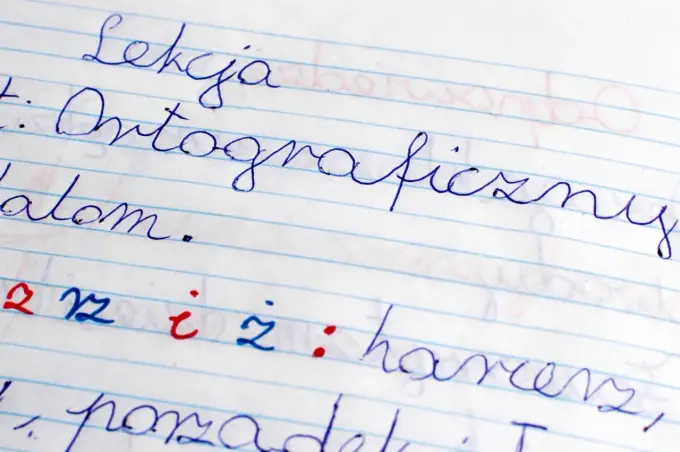 Lekcja
t: Ortograficzny
alom.
z rz i ż : harcerz,
porządek i I